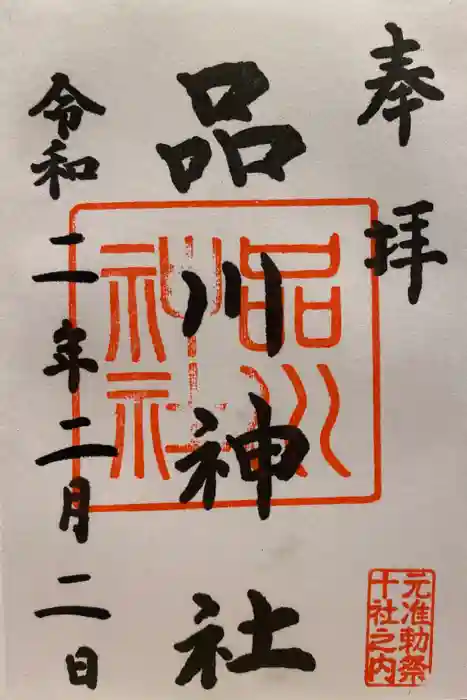 奉拝
品川神社
令和二年二月二日
品川
神社
元准勅祭
十社之内